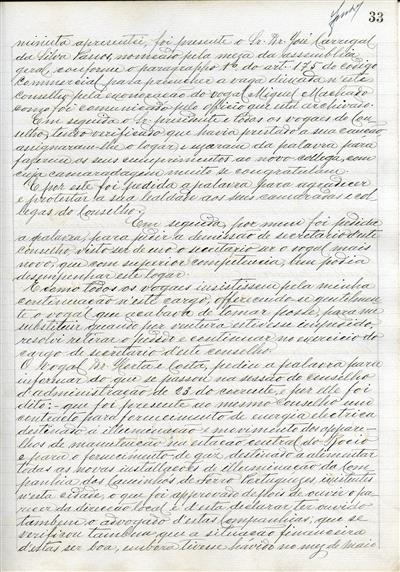 33
minuta apresentei, foi presente o Sr. Dr José Carregal
da Silva Passos, nomeado pela meza da assembleia
geral, conforme o paragrapho 1º do art. 175 do codigo
commercial para preencher a vaga deixada n'este
Conselho pela exoneração do vogal Miguel Machado
como foi communicado pelo officio que está archivado.
Em seguida o Sr. presidente e todos os vogaes do Con-
selho, tendo verificado que havia prestado a sua caução
assignaram-lhe o logar e usaram da palavra para
fazerem os seus cumprimentos ao novo collega, com
cuja camaradagem muito se congratulam.
E por este foi pedida a palavra para agradecer
e protestar a sua lealdade aos seus camaradas e col-
legas do Conselho.
Em seguida, por mim foi pedida
a palavra para pedir a demissão de secretario d'este
conselho visto ser de uso o secretario ser o vogal mais
novo, que com superior competencia, bem podia
desempenhar este logar.
E como todos os vogaes insistissem pela minha
continuação n'este cargo, offerecendo-se gentilmen-
te o vogal que acabava de tomar posse, para me
substituir quando por ventura estivesse impedido,
resolvi retirar o pedido e continuar no exercicio do
cargo de secretario d'este conselho.
O vogal Dr Horta e Costa, pediu a palavra para
informar do que se passou na sessão do conselho
d'administração de 23 do corrente, e por elle foi
dito: - que foi presente ao mesmo Conselho um
contracto para fornecimento de energia electrica
destinada a illuminação e movimento dos appare-
lhos de manutenção na estação central do Rocio
e para o fornecimento de gaz destinado a alimentar
todas as novas installações de illuminação da Com-
panhia dos Caminhos de Ferro Portuguezes, existentes
n'esta cidade, o que foi approvado depois de ouvir o pa-
recer da direcção local e d'esta declarar ter ouvido
tambem o advogado d'estas companhias; que se
verificou tambem que a situação financeira
d'estas ser boa, embora tivesse havido no mez de maio